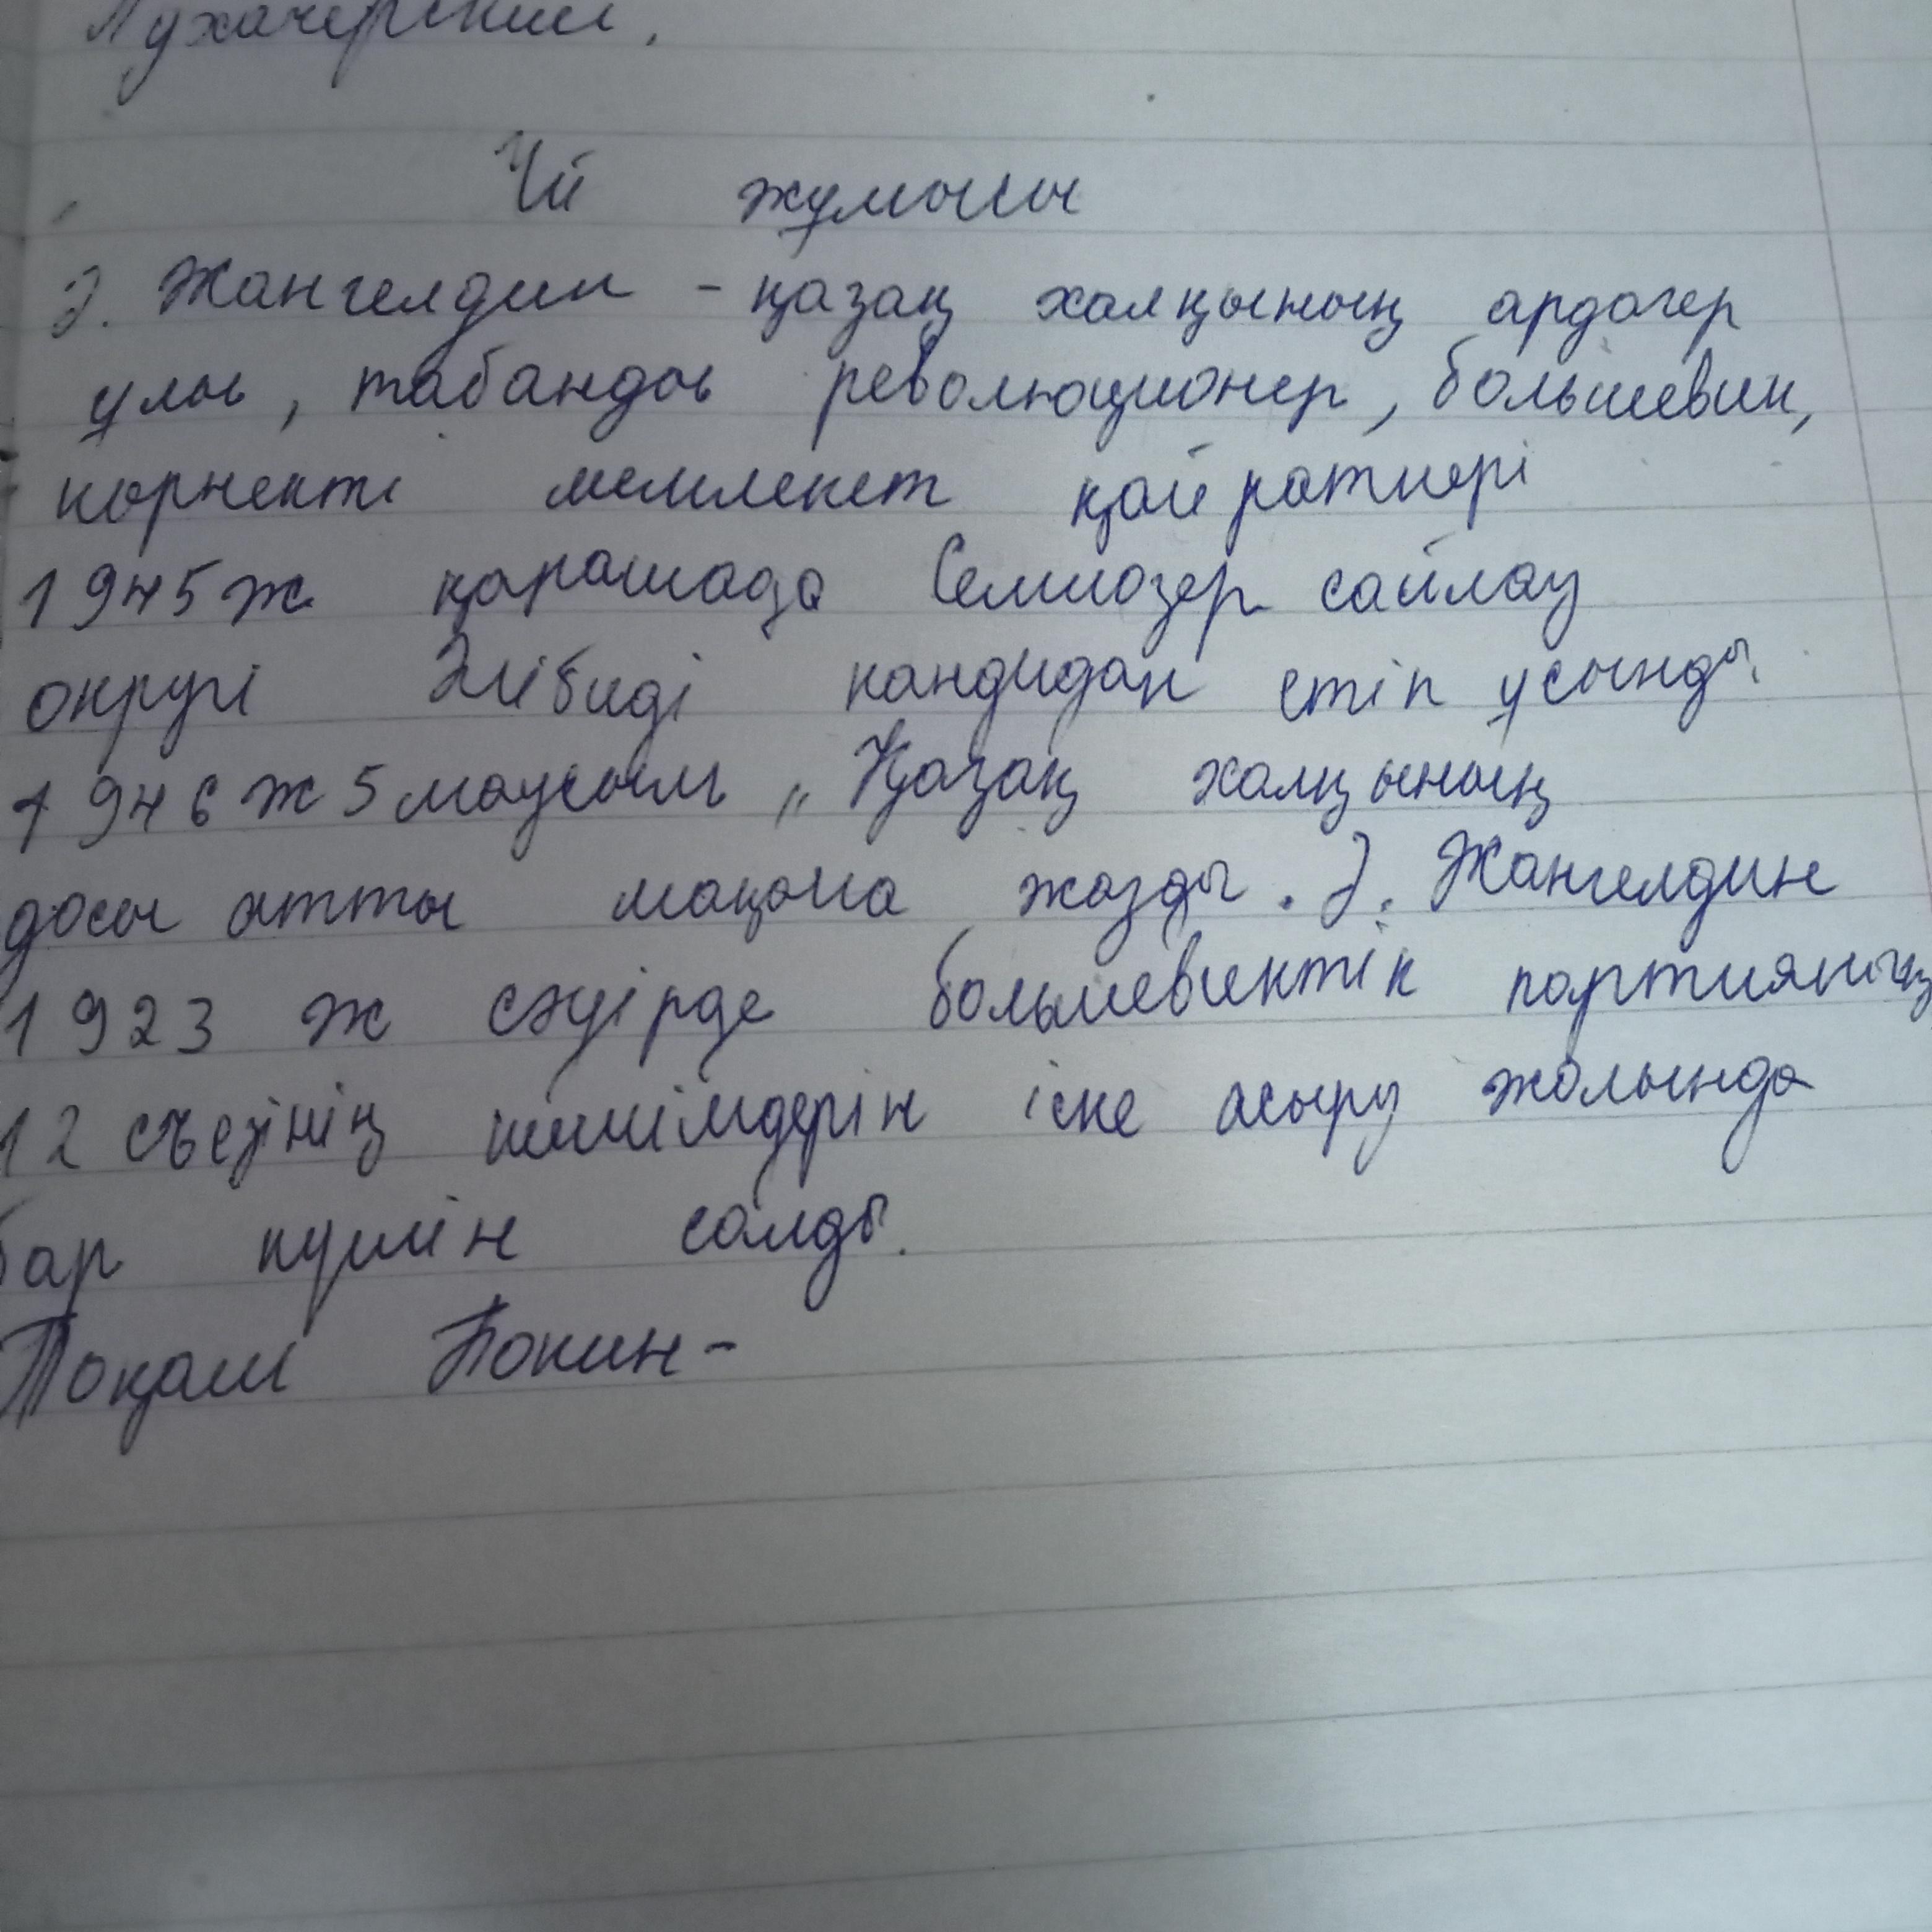 Үй жұмысы
Ә. Жангелдин - қазақ халқының ардагер
ұлы, табанды революционер, большевик,
көрнекті мемлекет қайраткері
1945ж қарашада Семиозер сайлау
округі Әлібиді кандидат етіп ұсынды.
1946 ж 5 маусым „Қазақ халқының
досы атты мақала жазды. Ә. Жангелдин
1923 ж сәуірде большевиктік партияның
12 съезінің шешімдерін іске асыру жолында
бар күшін салды.
Тоқаш Бокин-